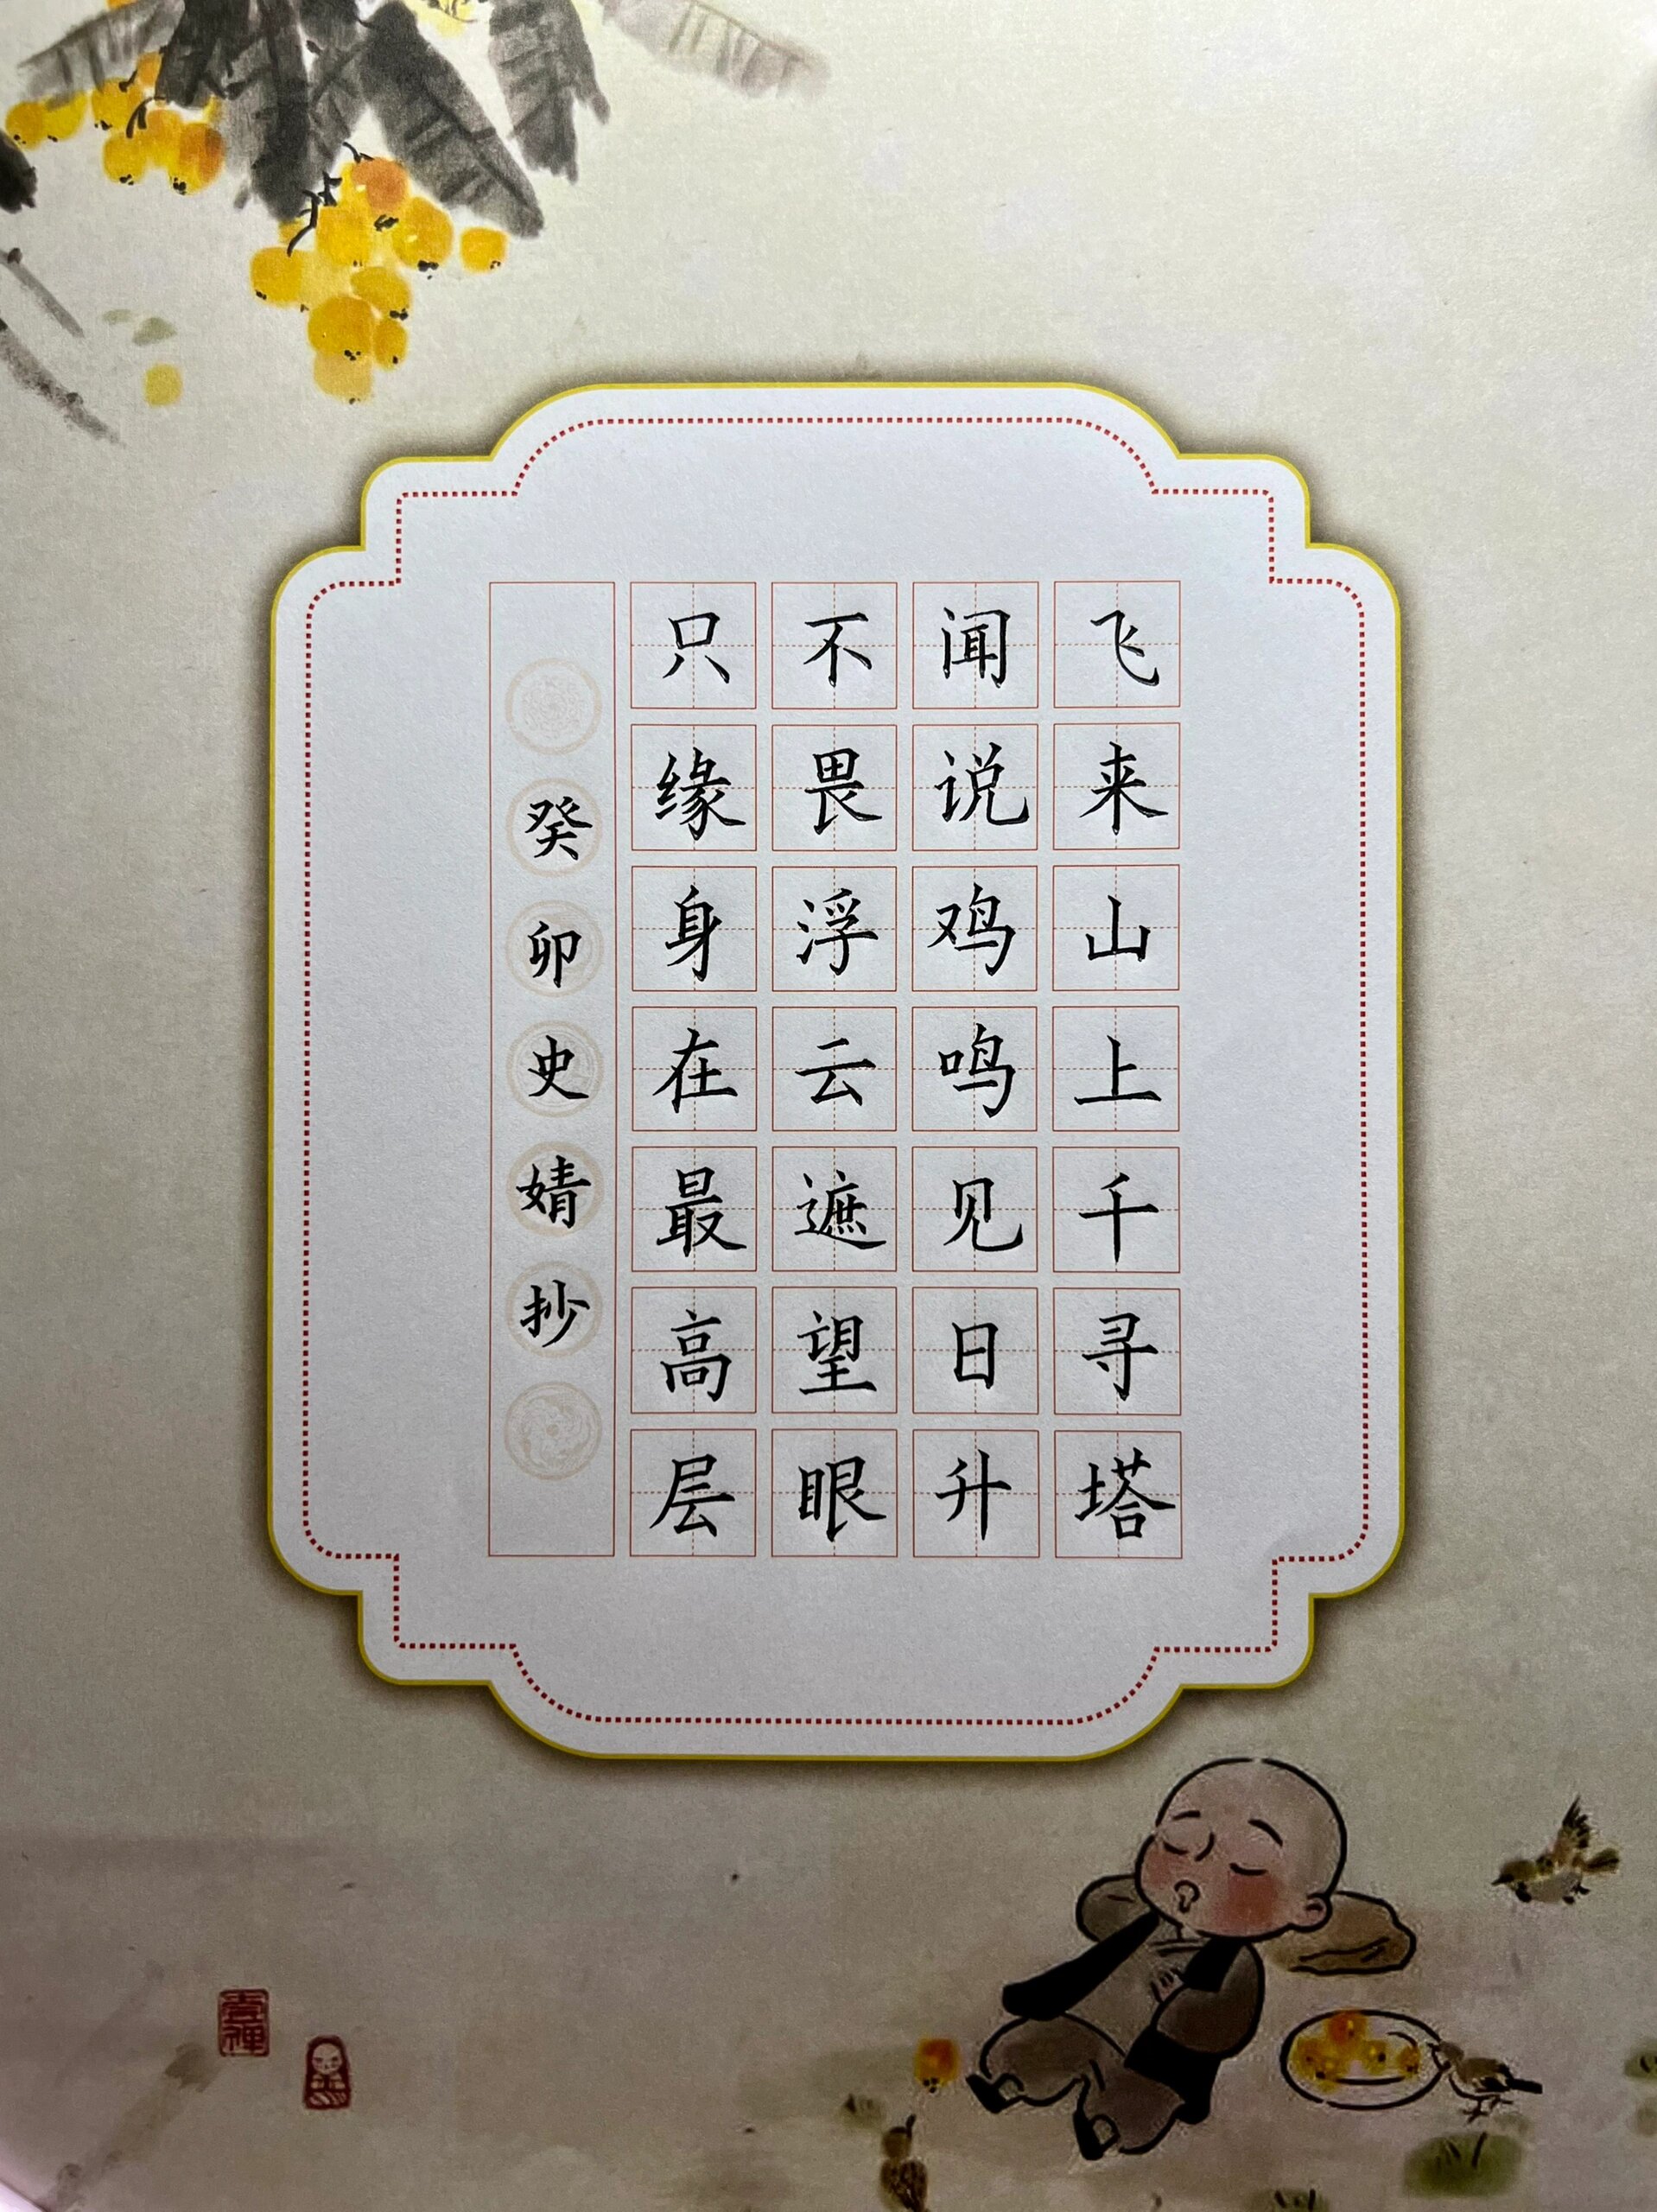 飞来山上千寻塔
闻说鸡鸣见日升
不畏浮云遮望眼
只缘身在最高层
癸卯史婧抄